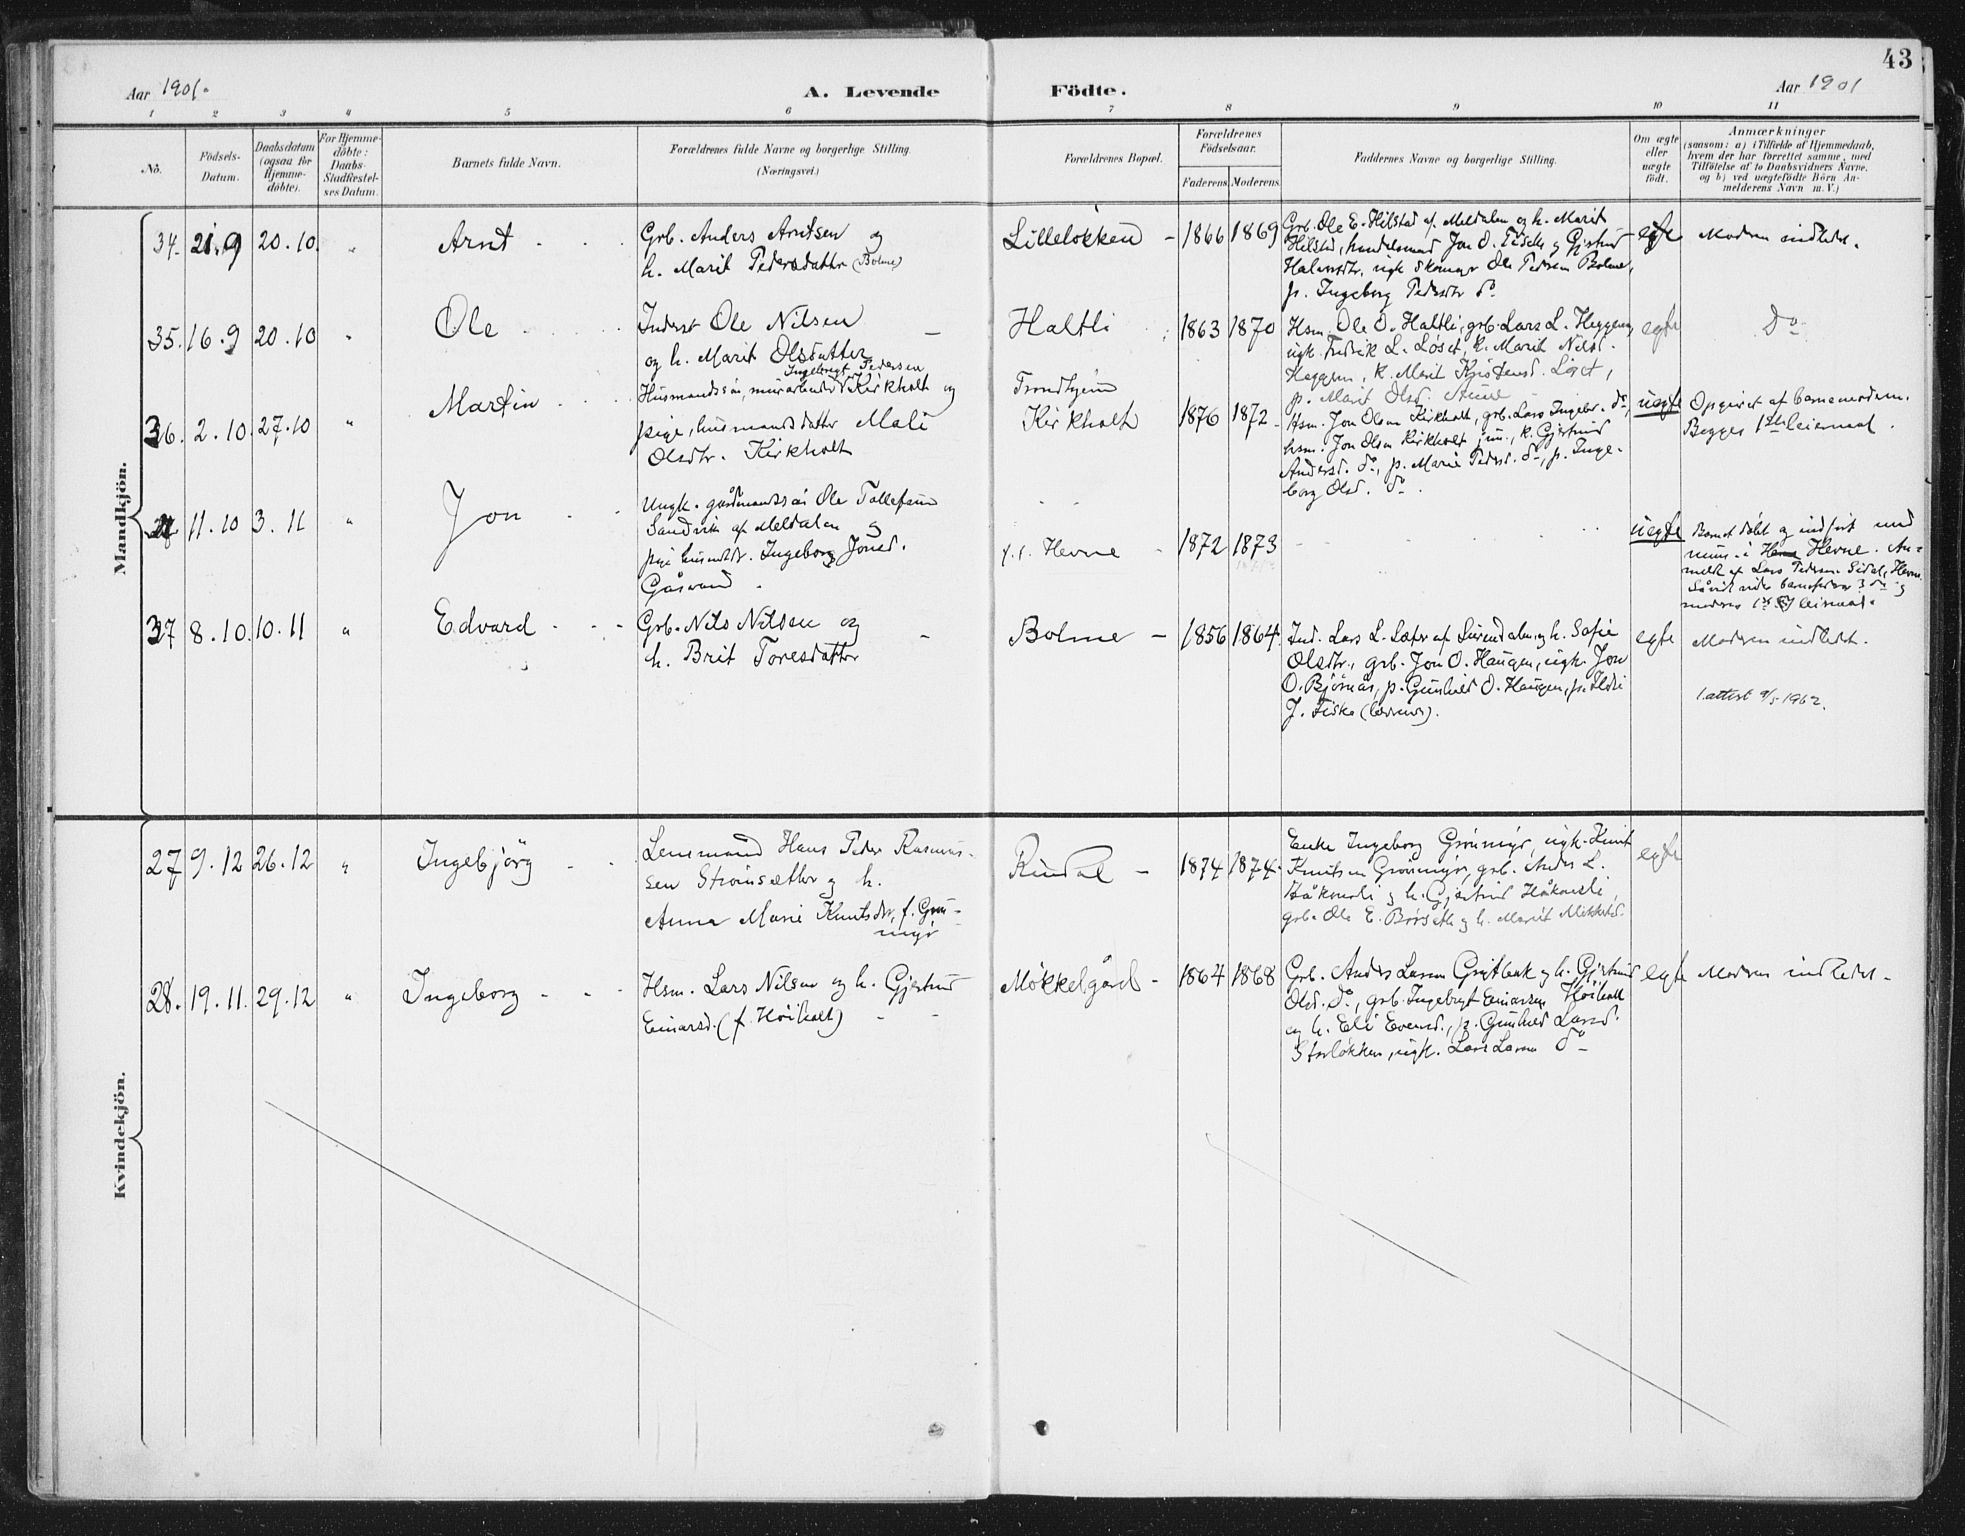 43
Aar 1901.
A. Levende
Födte.
Aar 1901
1 2 3 4 5 6 7 8 9 10 11
No.
Födsels-
Datum.
Daabsdatum
(ogsaa for
Hjemme-
döbte).
For Hjemme-
döbte:
Daabs-
Stadfæstel-
ses Datum.
Barnets fulde Navn.
Forældrenes fulde Navne og borgerlige Stilling.
(Næringsvei.)
Forældrenes Bopæl.
Forældrenes
Födselsaar.
Faderens.
Moderens.
Faddernes Navne og borgerlige Stilling.
Om ægte
eller
uægte
födt.
Anmærkninger
(saasom: a) i Tilfælde af Hjemmedaab,
hvem der har forrettet samme, med
Tilföielse af to Daabsvidners Navne,
og b) ved uægtefödte Börn An-
melderens Navn m. V.)
Mandkjön.
34. 21.9 20.10. " Arnt
Grb. Anders Arntsen og
h. Marit Pedersdatter (Bolme)
Lilleløkken - 1866 1869
Grb. Ole E. Hilstad af Meldalen og h. Marit
Hilstad, handelsmand Jon O. Fiske og Gjertrud
Halvorsdtr, ugk. skomager Ole Pedersen Bolme,
p. Ingeborg Pedersdtr do
egte
Moderen indledet.
35. 16.9 20.10 " Ole
Inderst Ole Nilsen
og h. Marit Olsdatter
Haltli 1863 1870
Hsm. Ole O. Haltli, grb. Lars L. Heggem,
ugk. Fredrik L. Løset, k. Marit Nilsd.
Heggem, k. Marit Kristensd. Løset,
p. Marit Olsd. Aune
egte
Do
36. 2.10 27.10 " Martin
Ingebrigt Pedersen
Husmandssøn, murarbeider Kirkholt og
pige, husmandsdatter Mali
Olsdtr. Kirkholt
Trondhjem
Kirkholt 1876 1872
Hsm. Jon Olsen Kirkholt, grb. Lars Ingebr. do,
hsm. Jon Olsen Kirkholt jun., k. Gjertrud
Andersd. do, p. Marie Pedersd. do, p. Inge-
borg Olsd. do.
uegte
Opgivet af barnemoderen.
Begges 1ste leiermaal.
11.10 3.11 " Jon
Ungk. gårdmandssøn Ole Tollefsen
Sandvik af Meldalen og
pige husmdtr. Ingeborg Jonsd.
Gåsvand.
p.t. Hevne - 1872 1873
uegte
Barnet døbt og indført med
num. i Hevne. An-
meldt af Lars Pedersen Sidal, Hevne.
37 8.10. 10.11 " Edvard
Grb. Nils Nilsen og
h. Brit Toresdatter
Bolme - 1856 1864.
Ind. Lars L. Sæter af Surendalen og h. Sofie
Olsdtr., grb. Jon O. Haugen, ugk. Jon
O. Bjørnås, p. Gunhild O. Haugen, p. Ildri
J. Fiske (lærerinde).
egte
Moderen indledet.
1. attest 9/5-1962.
Kvindekjön.
27 9.12 26.12 " Ingebjörg
Lensmand Hans Peder Rasmus-
sen Strømsætter og h.
Anna Marie Knutsdtr, f. Grøn-
myr
Rindal - 1874 1874.
Enke Ingeborg Grønmyr, ugk. Knut
Knutsen Grønmyr, grb. Anders L.
Håkonsli og h. Gjertrud Håkonsli,
grb. Ole E. Børseth og h. Marit Mikkelsd.
egte
28. 19.11. 29.12 " Ingeborg
Hsm. Lars Nilsen og h. Gjertrud
Einarsd. (f. Høiholt)
Møkkelgård - 1864 1868
Grb. Anders Larsen Grytbak og h. Gjertrud
Olsd. do, grb. Ingebrigt Einarsen Høiholt
og h. Eli Evensd., p. Gunhild Larsd.
Storløkken, ugk. Lars Larsen do
egte
Moderen indledet.